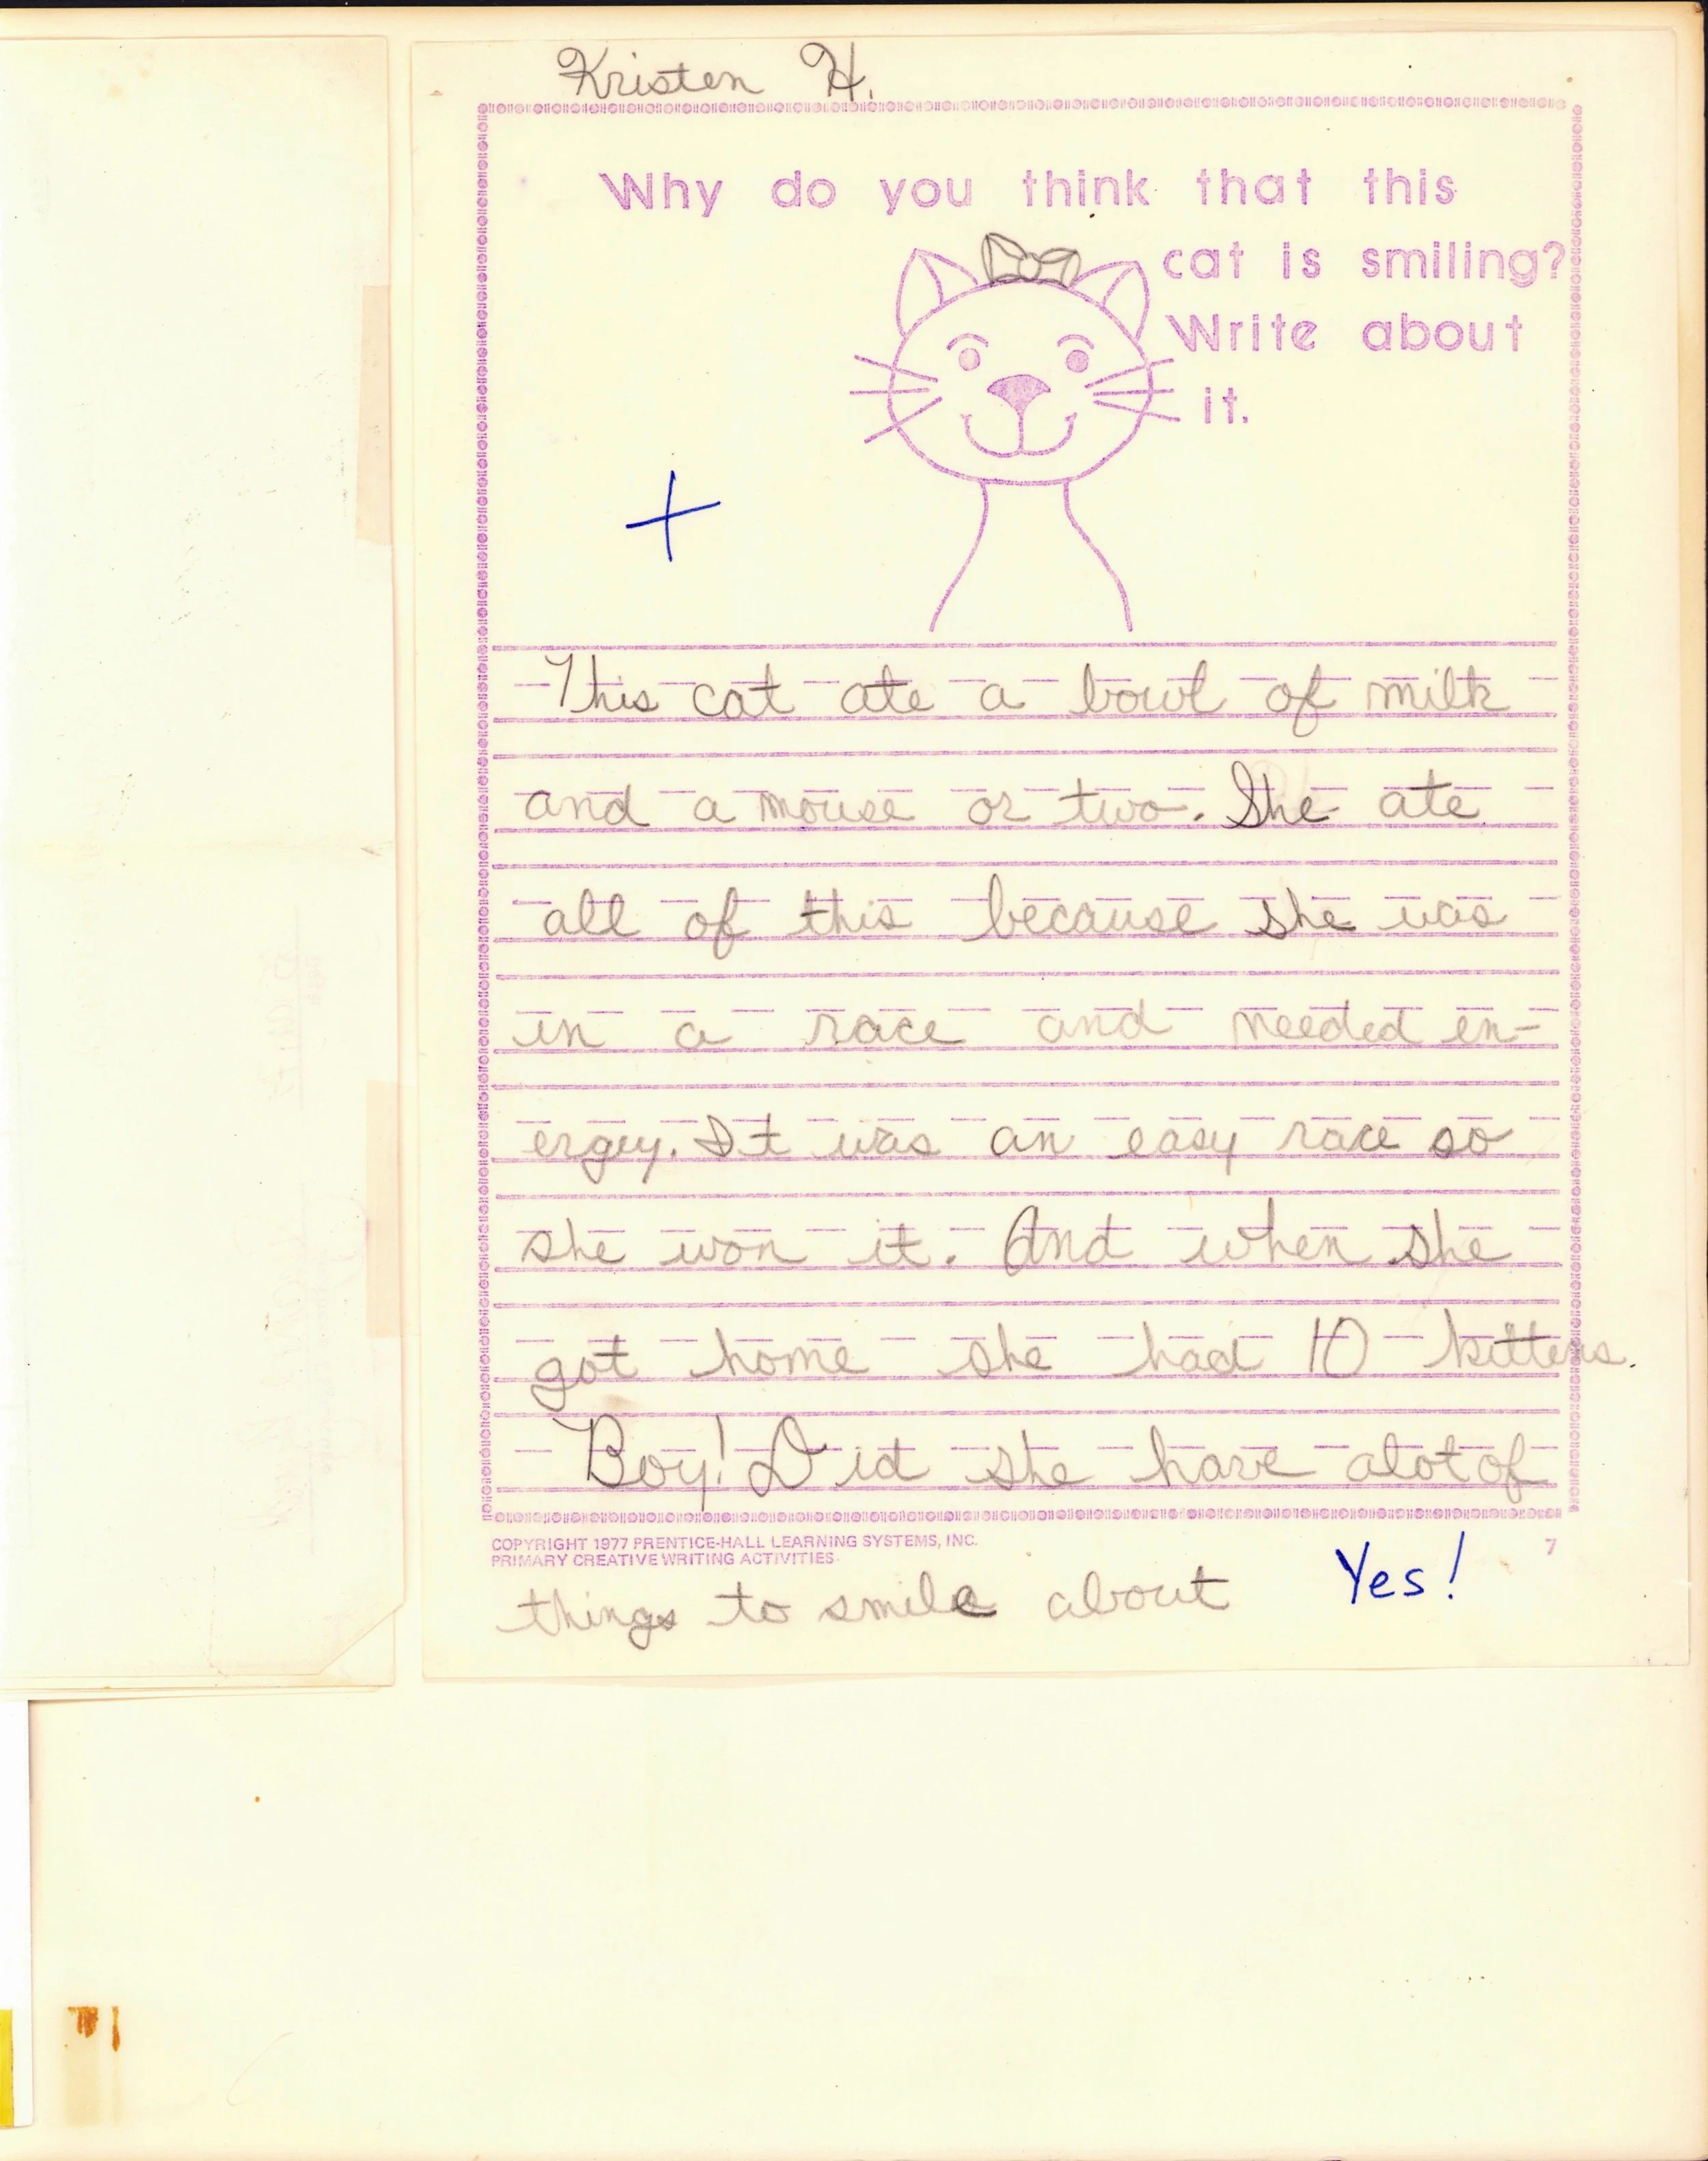 Kristen H.
Why do you think that this
cat is smiling?
Write about
it.
+
This cat ate a bowl of milk
and a mouse or two. She ate
all of this because she was
in a race and needed en-
ergey. It was an easy race so
she won it. And when she
got home she had 10 kittens.
Boy! Did she have alot of
COPYRIGHT 1977 PRENTICE-HALL LEARNING SYSTEMS, INC. 7
PRIMARY CREATIVE WRITING ACTIVITIES
things to smile about Yes!